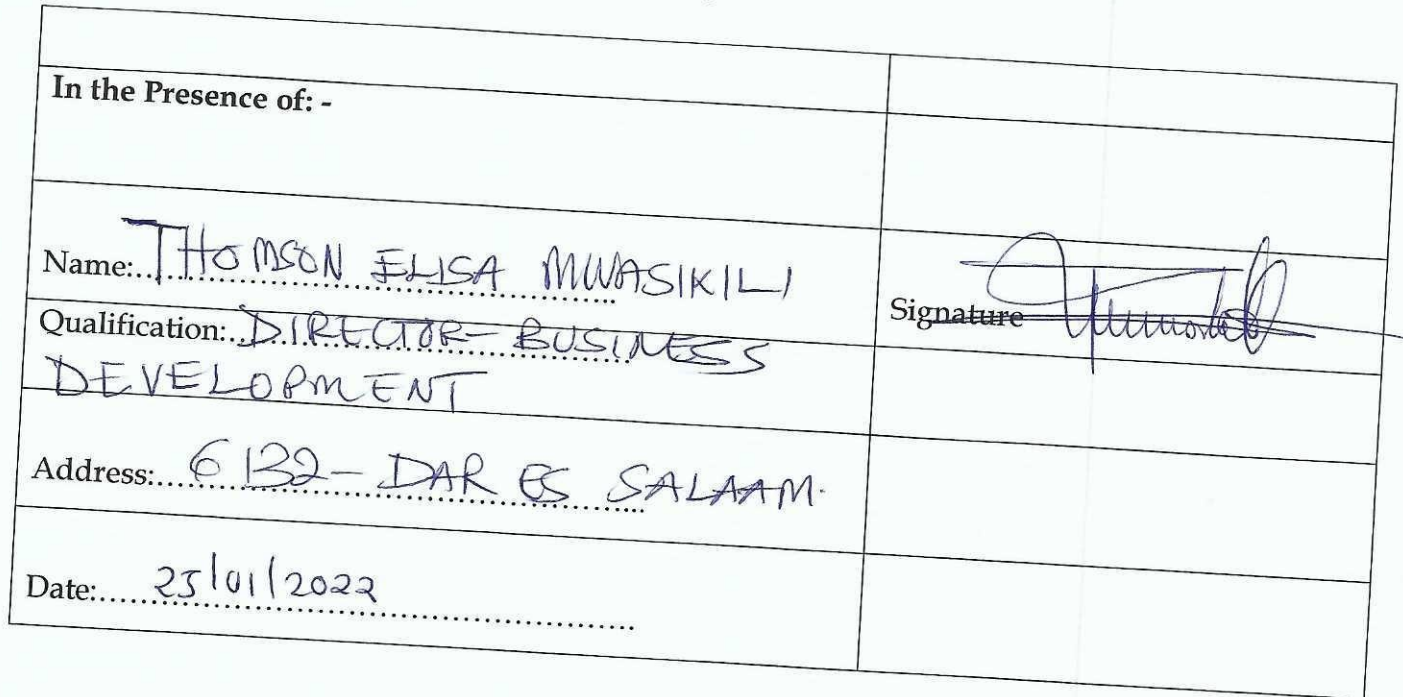 In the Presence of: -
Name:..THOMSON ELISA MWASIKILI
Signature
Qualification:..DIRECTOR- BUSINESS
DEVELOPMENT
Address:....6132- DAR ES SALAAM.
Date:.....25/01/2022